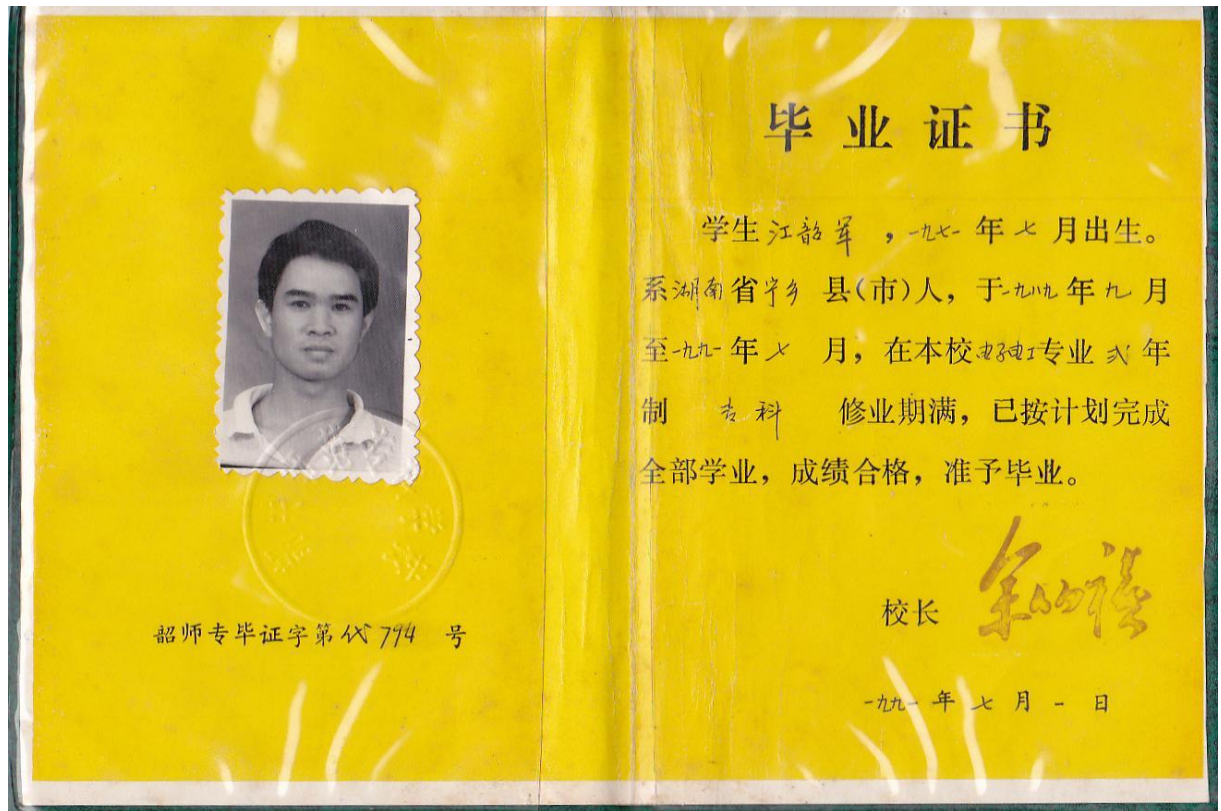 韶师专毕证字第代794 号
毕业证书
学生江韶军,一九七一年七月出生。
系湖南省宁乡县(市)人,于一九八九年九月
至一九九一年七月,在本校电子电工专业贰年
制 专科 修业期满,已按计划完成
全部学业,成绩合格,准予毕业。
校长
一九九一年七月一日